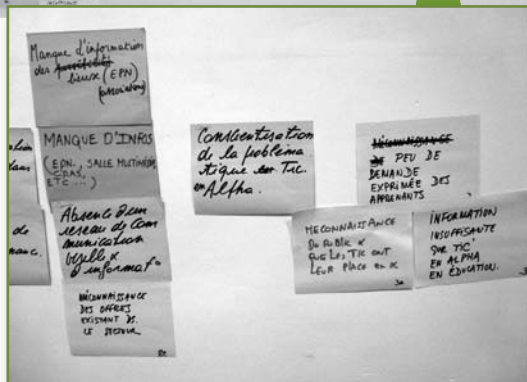 Manque d'information
des possibilités
lieux (EPN)
(associations)
MANQUE D'INFOS
(EPN, SALLE MULTIMÉDIA,
CRAS,
ETC...)
Absence d'un
reseau de com
munication
d'informat°
MÉCONNAISSANCE
DES OFFRES
EXISTANT DS.
LE SECTEUR
de
Conscientisation
de la probléma
tique Tic
en Alpha.
MÉCONNAISSANCE
DE PEU DE
DEMANDE
EXPRIMÉE DES
APPRENANTS
MECONNAISSANCE
DU PUBLIC α
QUE LES TIC ONT
LEUR PLACE EN α
INFORMATION
INSUFFISANTE
SUR TIC
EN ALPHA
EN ÉDUCATION.